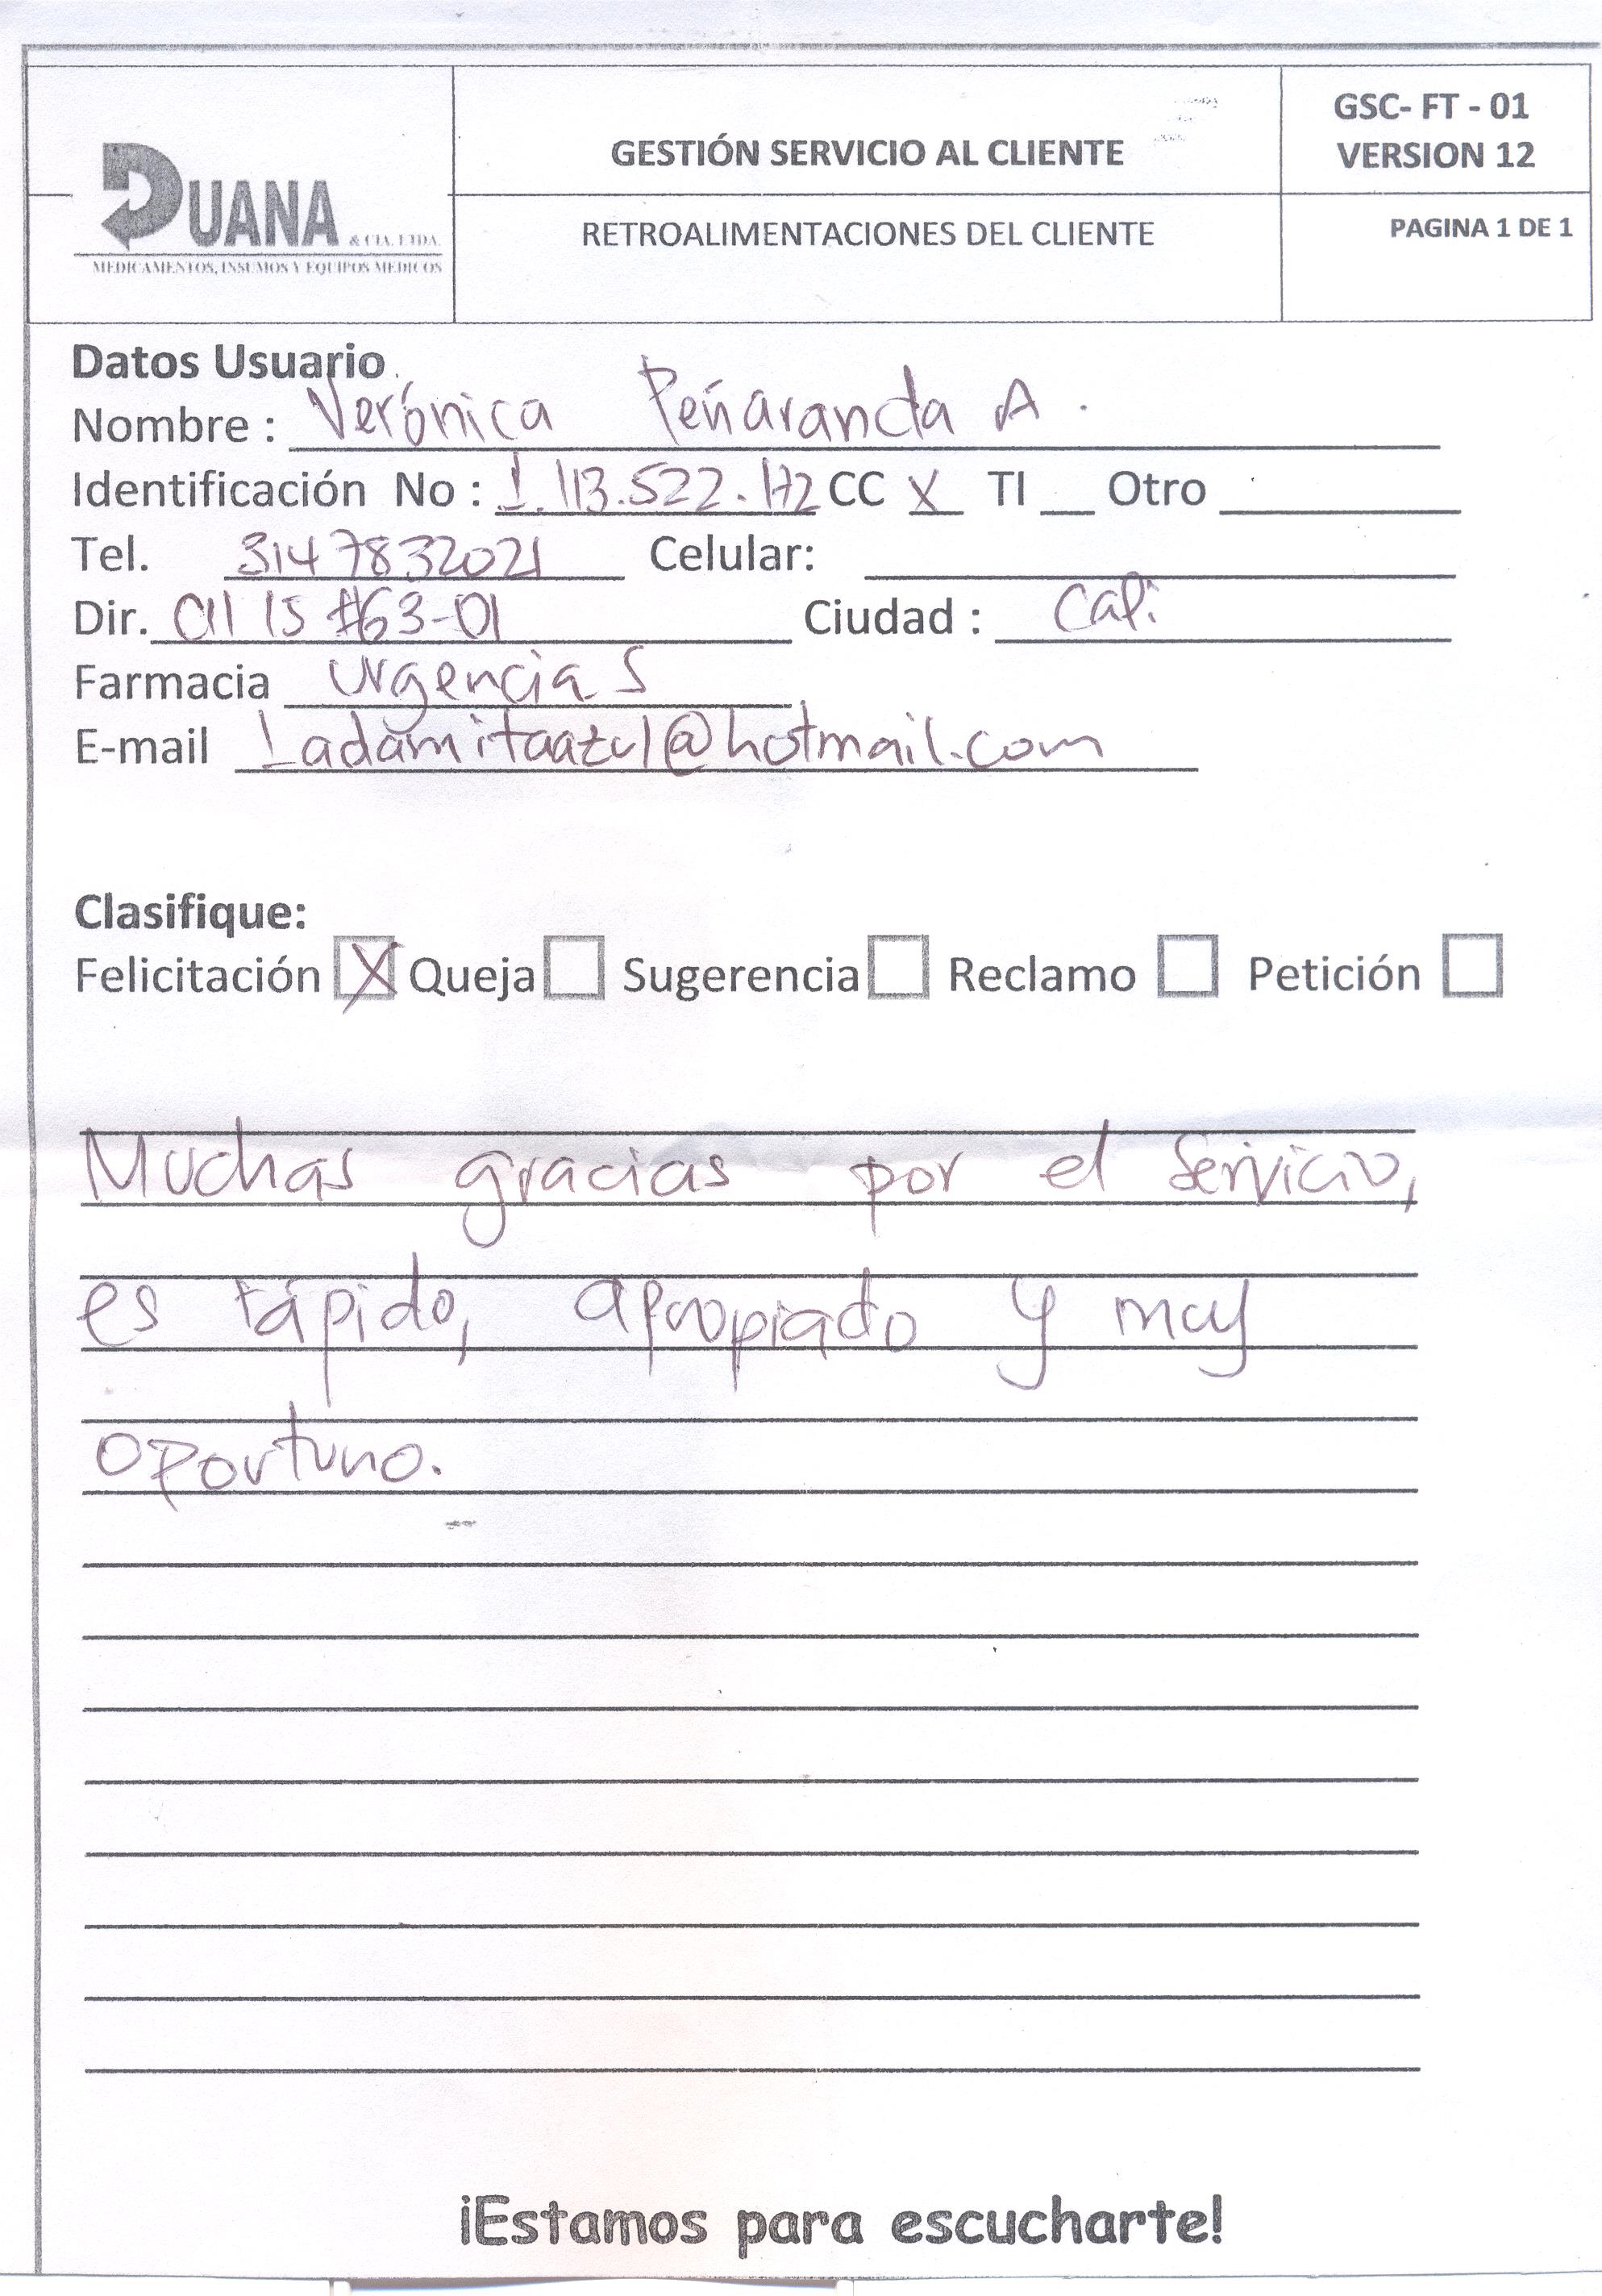 DUANA & CIA. LTDA.
MEDICAMENTOS, INSUMOS Y EQUIPOS MEDICOS
GESTIÓN SERVICIO AL CLIENTE
RETROALIMENTACIONES DEL CLIENTE
GSC- FT - 01
VERSION 12
PAGINA 1 DE 1
Datos Usuario
Nombre : Verónica Peñaranda A.
Identificación No : 1.113.522.172 CC X TI __ Otro
Tel. 3147832021 Celular:
Dir. Cll 15 #63-01 Ciudad : Cali
Farmacia Urgencias
E-mail Ladamitaazul@hotmail.com
Clasifique:
Felicitación X Queja Sugerencia Reclamo Petición
Muchas gracias por el Servicio,
es rápido, apropiado y muy
oportuno.
¡Estamos para escucharte!